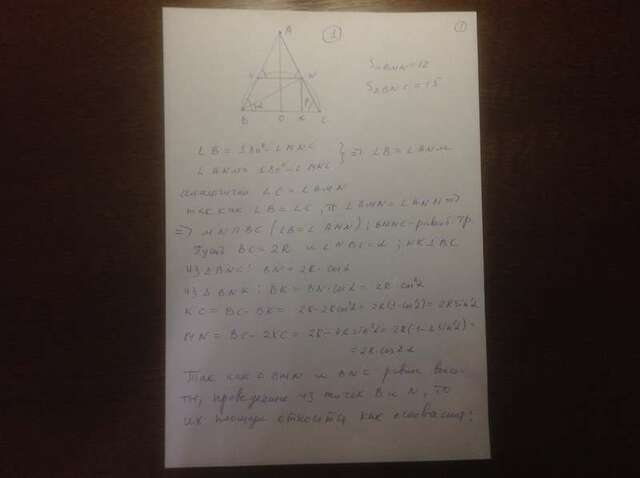 1
1
A
S△BMN=12
S△BNC=15
M N
α β
B O K C
∠B = 180° - ∠MNC
∠ANM = 180° - ∠MNC } ⇒ ∠B = ∠ANM
∠C = ∠AMN
так как ∠B = ∠C, то ∠AMN = ∠ANM ⇒
⇒ MN || BC (∠B = ∠AMN); BMNC - равноб. тр.
Пусть BC = 2R и ∠NBC = α; NK ⊥ BC
Из △BNC: BN = 2R·cosα
Из △BNK: BK = BN·cosα = 2R·cos²α
KC = BC - BK = 2R - 2Rcos²α = 2R(1-cos²α) = 2Rsin²α
MN = BC - 2KC = 2R - 4Rsin²α = 2R(1-2sin²α) =
= 2R·cos2α
Так как ∠BMN и BNC равны высо-
ты, проведенные из точек B и N, то
их площади относятся как основания: